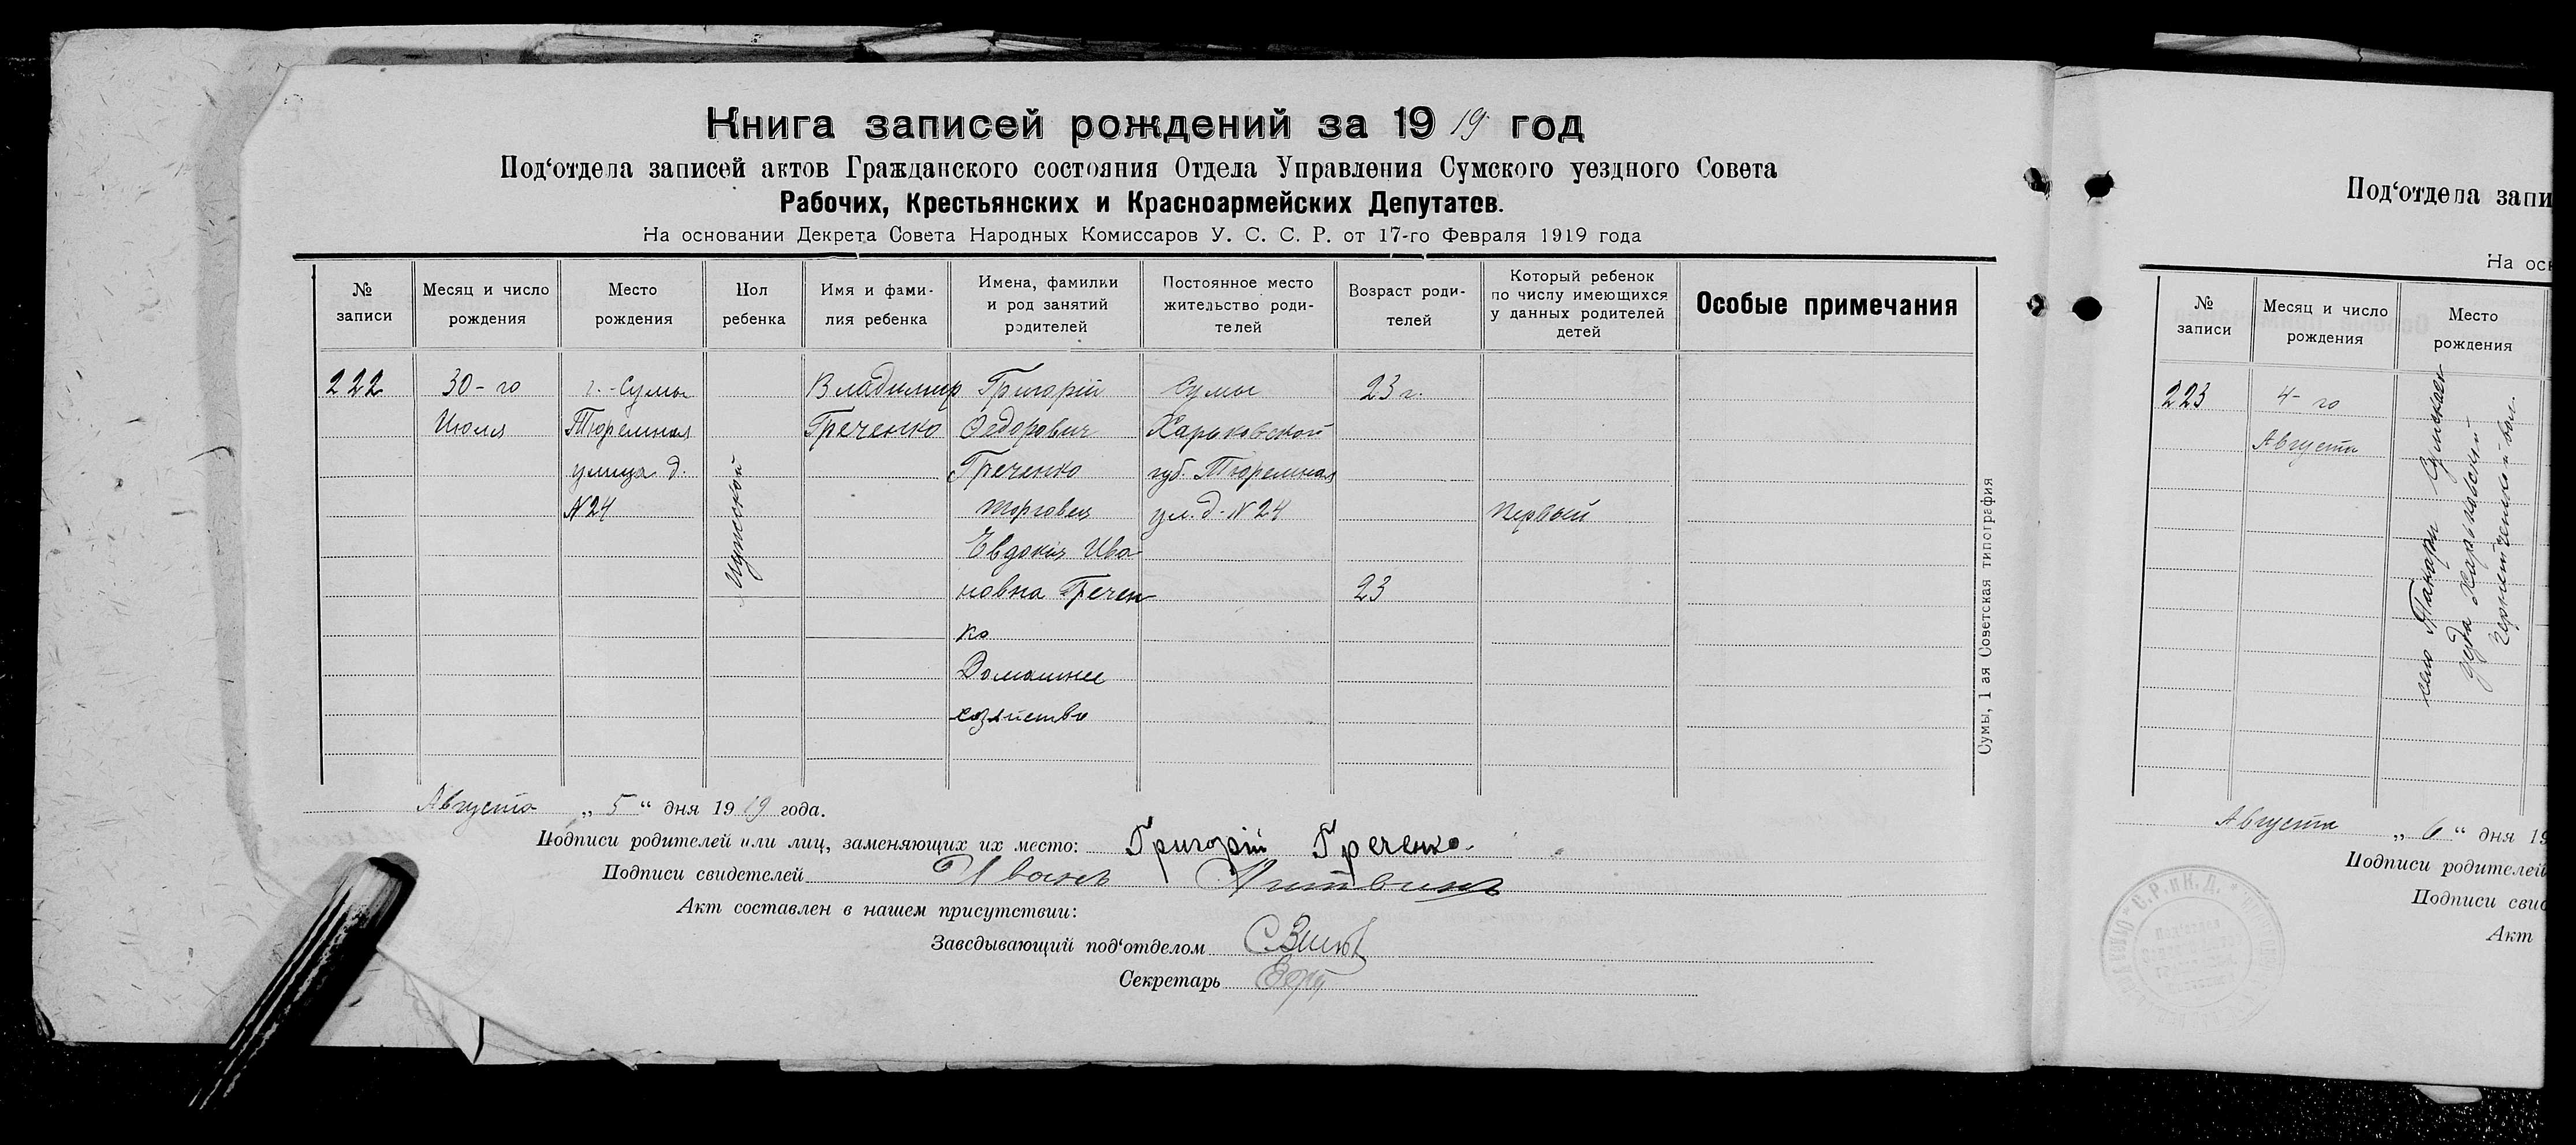 Книга записей рождений за 1919 год
Под‘отдела записей актов Гражданского состояния Отдела Управления Сумского уездного Совета
Рабочих, Крестьянских и Красноармейских Депутатов.
На основании Декрета Совета Народных Комиссаров У. С. С. Р. от 17-го Февраля 1919 года
№ записи
Месяц и число рождения
Место рождения
Пол ребенка
Имя и фами-
лия ребенка
Имена, фамилии
и род занятий
родителей
Постоянное место
жительство роди-
телей
Возраст роди-
телей
Который ребенок
по числу имеющихся
у данных родителей
детей
Особые примечания
222
30-го
Июля
г. Сумы
Тюремная
улица д.
№24
Мужской
Владимир
Греченко
Григорій
Федорович
Греченко
торговец
Евдокія Ива
новна Гречен
ко
Домашнее
хозяйство
Сумы
Харьковской
губ. Тюремная
ул. д. №24
23 г.
23
Первый
Сумы, 1 ая Советская типография
Августа „5“ дня 1919 года.
Подписи родителей или лиц, заменяющих их место: Григорій Греченко.
Подписи свидетелей Иванъ Литвинъ
Акт составлен в нашем присутствии:
Заведывающий под‘отделом
Секретарь
Под‘отдела запи
На осн
№ записи
Месяц и число рождения
Место рождения
223
4-го
Августа
село Сумскаго
уезда Харьковской
вол.
Августа „6“ дня 19
Подписи родителей
Подписи свид
Акт
С.Р.иК.Д.